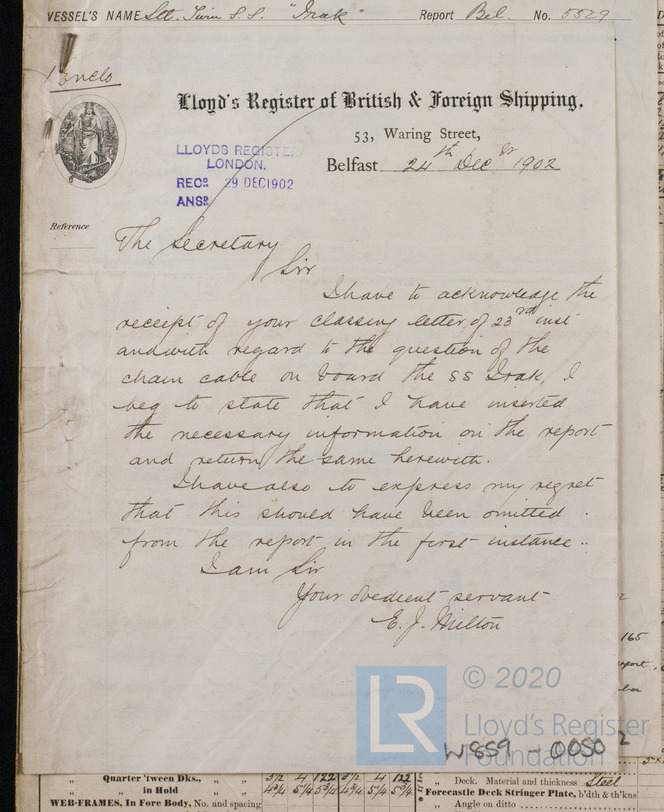 VESSEL'S NAME Stl. Twin S.S. "Irak" Report Bel. No. 5529
1 Enclo
Lloyd's Register of British & Foreign Shipping.
53, Waring Street,
Belfast 24th Decr 1902
LLOYDS REGISTER
LONDON.
RECD. 29 DEC 1902
ANSD.
Reference
The Secretary
Sir
I have to acknowledge the
receipt of your classing letter of 23rd inst
and with regard to the question of the
chain cable on board the SS Irak, I
beg to state that I have inserted
the necessary information on the report
and return the same herewith.
I have also to express my regret
that this should have been omitted
from the report in the first instance..
I am Sir
Your obedient servant
E. J. Milton
165
LR
© 2020
Lloyd's Register
Foundation
W889 - 0050 2
Quarter 'tween Dks., „ „
„ „ in Hold „ „
WEB-FRAMES, In Fore Body, No. and spacing
„ Deck. Material and thickness Steel
Forecastle Deck Stringer Plate, b'dth & th'kns
„ „ Angle on ditto